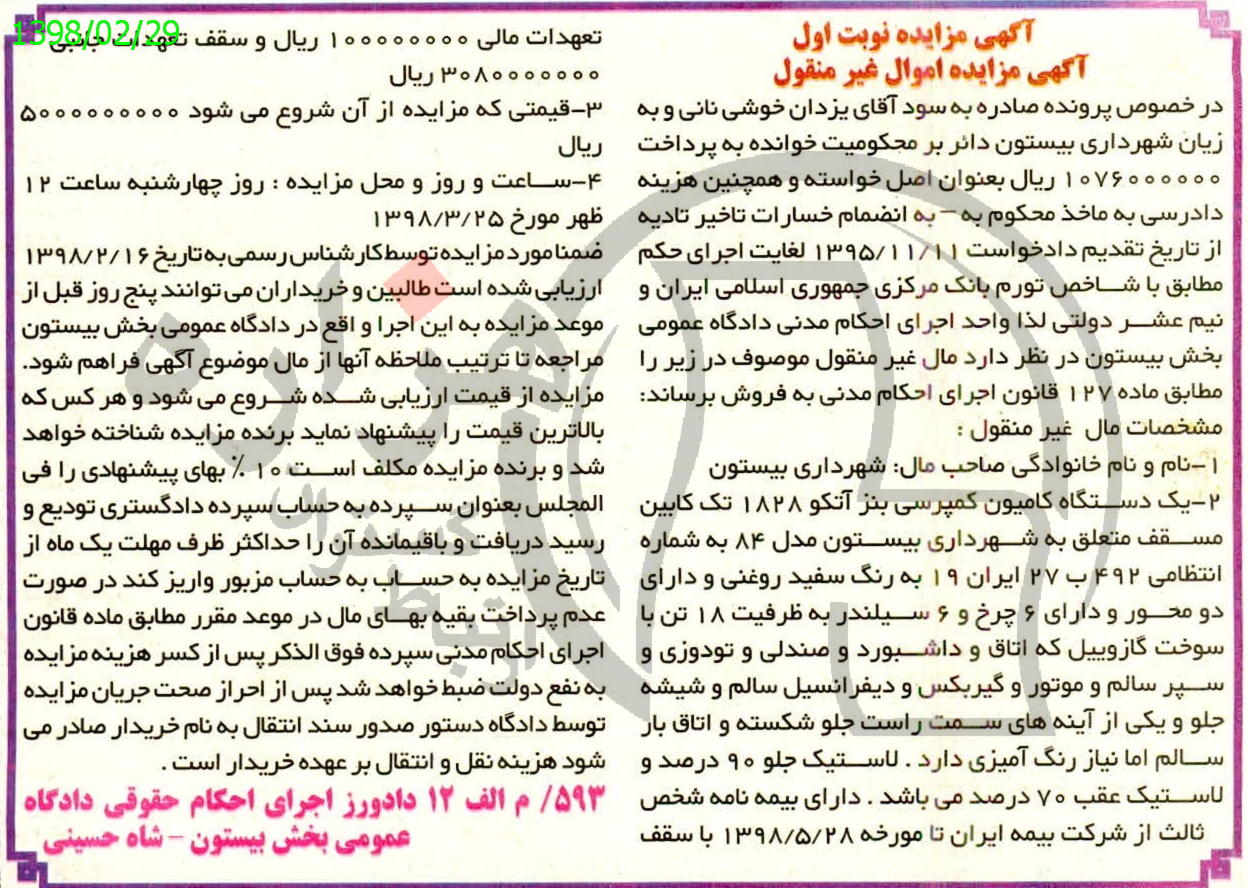 1398/02/29
آگهی مزایده نوبت اول
آگهی مزایده اموال غیر منقول
در خصوص پرونده صادره به سود آقای یزدان خوشی نانی و به
زیان شهرداری بیستون دائر بر محکومیت خوانده به پرداخت
۱۰۷۶۰۰۰۰۰۰ ریال بعنوان اصل خواسته و همچنین هزینه
دادرسی به ماخذ محکوم به – به انضمام خسارات تاخیر تادیه
از تاریخ تقدیم دادخواست ۱۳۹۵/۱۱/۱۱ لغایت اجرای حکم
مطابق با شاخص تورم بانک مرکزی جمهوری اسلامی ایران و
نیم عشر دولتی لذا واحد اجرای احکام مدنی دادگاه عمومی
بخش بیستون در نظر دارد مال غیر منقول موصوف در زیر را
مطابق ماده ۱۲۷ قانون اجرای احکام مدنی به فروش برساند:
مشخصات مال غیر منقول :
۱-نام و نام خانوادگی صاحب مال: شهرداری بیستون
۲-یک دستگاه کامیون کمپرسی بنز آتکو ۱۸۲۸ تک کابین
مسقف متعلق به شهرداری بیستون مدل ۸۴ به شماره
انتظامی ۴۹۲ ب ۲۷ ایران ۱۹ به رنگ سفید روغنی و دارای
دو محور و دارای ۶ چرخ و ۶ سیلندر به ظرفیت ۱۸ تن با
سوخت گازوییل که اتاق و داشبورد و صندلی و تودوزی و
سپر سالم و موتور و گیربکس و دیفرانسیل سالم و شیشه
جلو و یکی از آینه های سمت راست جلو شکسته و اتاق بار
سالم اما نیاز رنگ آمیزی دارد . لاستیک جلو ۹۰ درصد و
لاستیک عقب ۷۰ درصد می باشد . دارای بیمه نامه شخص
ثالث از شرکت بیمه ایران تا مورخه ۱۳۹۸/۵/۲۸ با سقف
تعهدات مالی ۱۰۰۰۰۰۰۰۰ ریال و سقف تعهدات جانبی
۳۰۸۰۰۰۰۰۰۰ ریال
۳-قیمتی که مزایده از آن شروع می شود ۵۰۰۰۰۰۰۰۰۰۰
ریال
۴-ساعت و روز و محل مزایده : روز چهارشنبه ساعت ۱۲
ظهر مورخ ۱۳۹۸/۳/۲۵
ضمنا مورد مزایده توسط کارشناس رسمی به تاریخ ۱۳۹۸/۲/۱۶
ارزیابی شده است طالبین و خریداران می توانند پنج روز قبل از
موعد مزایده به این اجرا و اقع در دادگاه عمومی بخش بیستون
مراجعه تا ترتیب ملاحظه آنها از مال موضوع آگهی فراهم شود.
مزایده از قیمت ارزیابی شده شروع می شود و هر کس که
بالاترین قیمت را پیشنهاد نماید برنده مزایده شناخته خواهد
شد و برنده مزایده مکلف است ۱۰ ٪ بهای پیشنهادی را فی
المجلس بعنوان سپرده به حساب سپرده دادگستری تودیع و
رسید دریافت و باقیمانده آن را حداکثر ظرف مهلت یک ماه از
تاریخ مزایده به حساب به حساب مزبور واریز کند در صورت
عدم پرداخت بقیه بهای مال در موعد مقرر مطابق ماده قانون
اجرای احکام مدنی سپرده فوق الذکر پس از کسر هزینه مزایده
به نفع دولت ضبط خواهد شد پس از احراز صحت جریان مزایده
توسط دادگاه دستور صدور سند انتقال به نام خریدار صادر می
شود هزینه نقل و انتقال بر عهده خریدار است .
۵۹۳/ م الف ۱۲ دادورز اجرای احکام حقوقی دادگاه
عمومی بخش بیستون – شاه حسینی